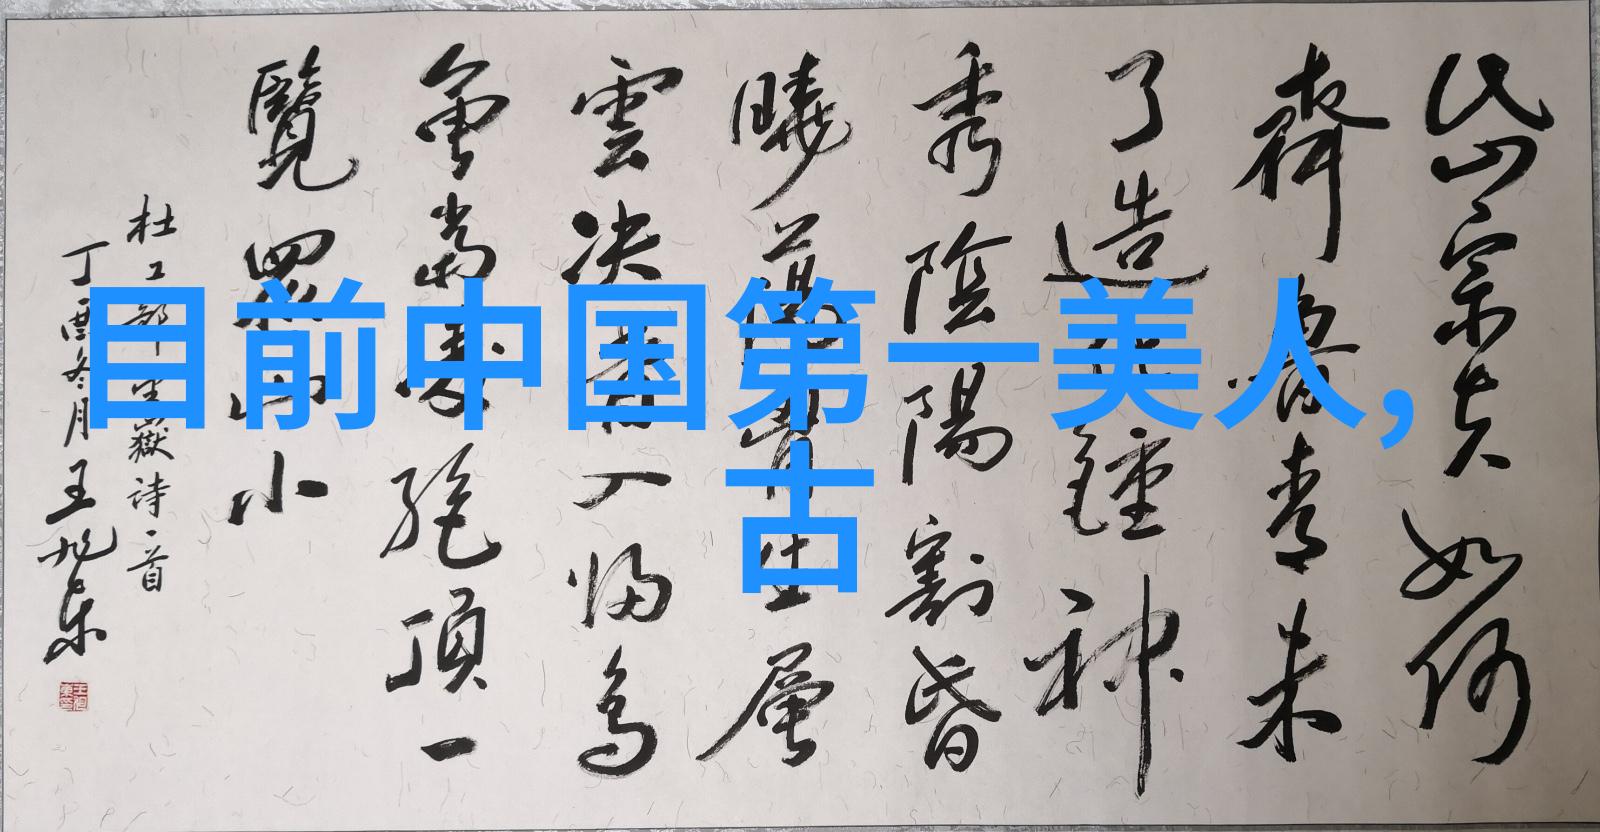 岱宗夫如何
齊魯青未
了造化鍾神
秀陰陽割昏
曉蕩胷生層
雲決眥入归鸟
會當凌絕頂一
覽眾山小
杜工部望嶽诗一首
丁酉冬月王旭东
目前中国第一美人，
古